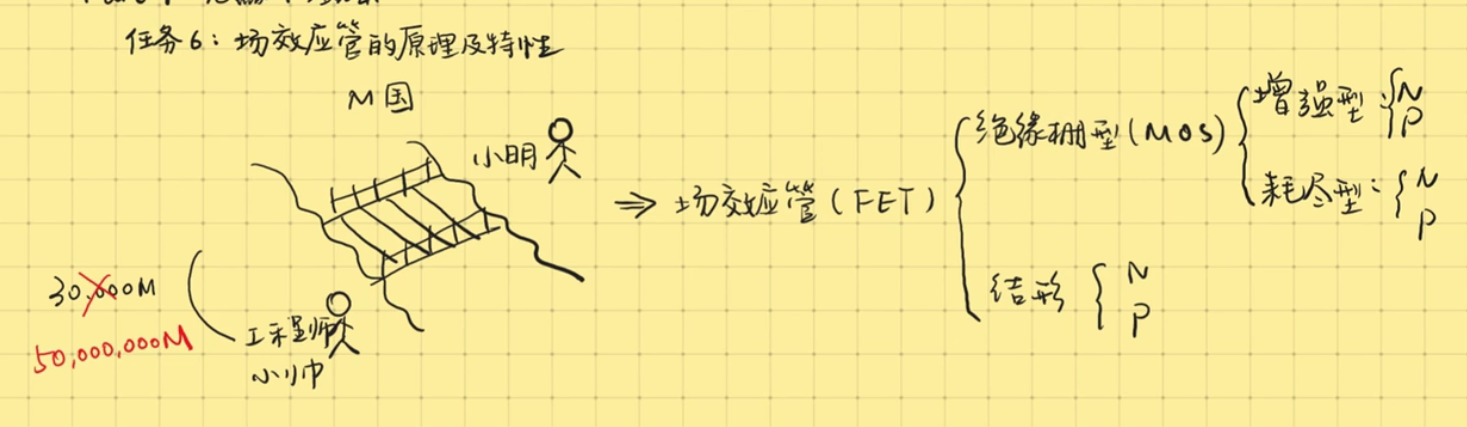 任务6：场效应管的原理及特性
M国
小明
30,000M
50,000,000M
工程师
小帅
⇒ 场效应管(FET)
绝缘栅型(MOS)
增强型：N
P
耗尽型：N
P
结形
N
P